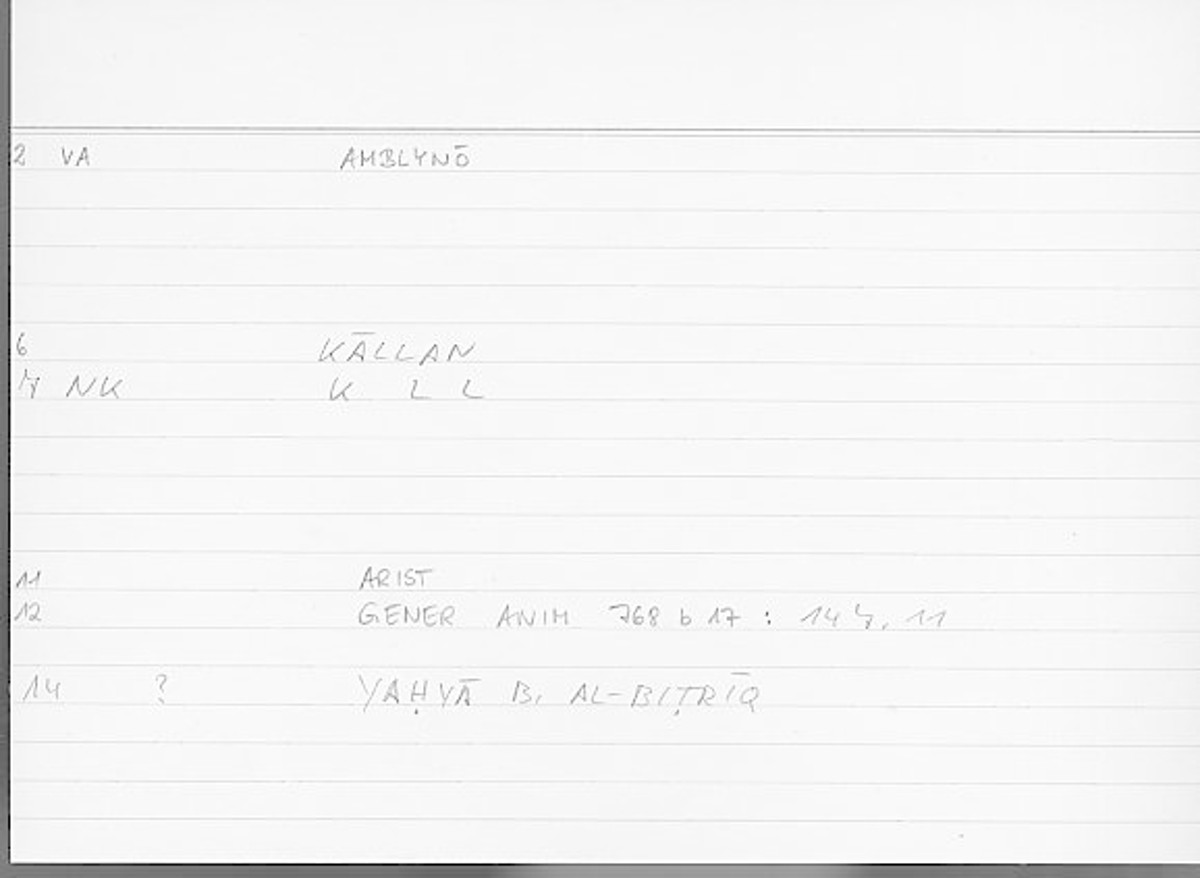 2 VA AMBLYNŌ
6 KĀLLAN
7 NK K L L
11 ARIST
12 GENER ANIM 768 b 17 : 147, 11
14 ? YAḤYĀ B. AL-BIṬRĪQ